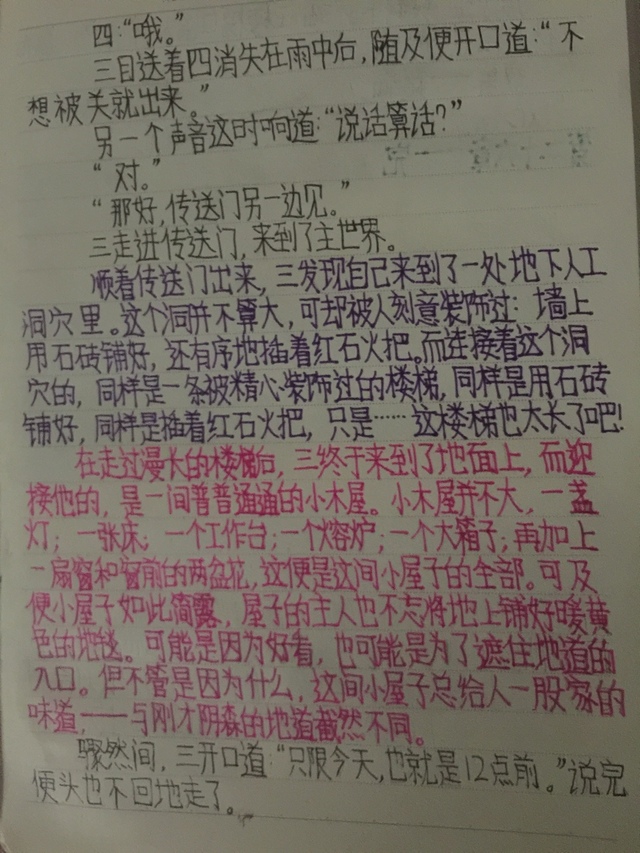 四：“哦。”
三目送着四消失在雨中后，随及便开口道：“不
想被关就出来。”
另一个声音这时响道：“说话算话？”
“对。”
“那好，传送门另一边见。”
三走进传送门，来到了主世界。
顺着传送门出来，三发现自己来到了一处地下人工
洞穴里。这个洞并不算大，可却被人刻意装饰过：墙上
用石砖铺好，还有序地插着红石火把。而连接着这个洞
穴的，同样是一条被精心装饰过的楼梯，同样是用石砖
铺好，同样是插着红石火把，只是……这楼梯也太长了吧！
在走过漫长的楼梯后，三终于来到了地面上，而迎
接他的，是一间普普通通的小木屋。小木屋并不大，一盏
灯；一张床；一个工作台；一个熔炉；一个大箱子；再加上
一扇窗和窗前的两盆花，这便是这间小屋子的全部。可及
便小屋子如此简露，屋子的主人也不忘将地上铺好暖黄
色的地毯。可能是因为好看，也可能是为了遮住地道的
入口。但不管是因为什么，这间小屋子总给人一股家的
味道，——与刚才阴森的地道截然不同。
骤然间，三开口道：“只限今天，也就是12点前。”说完
便头也不回地走了。